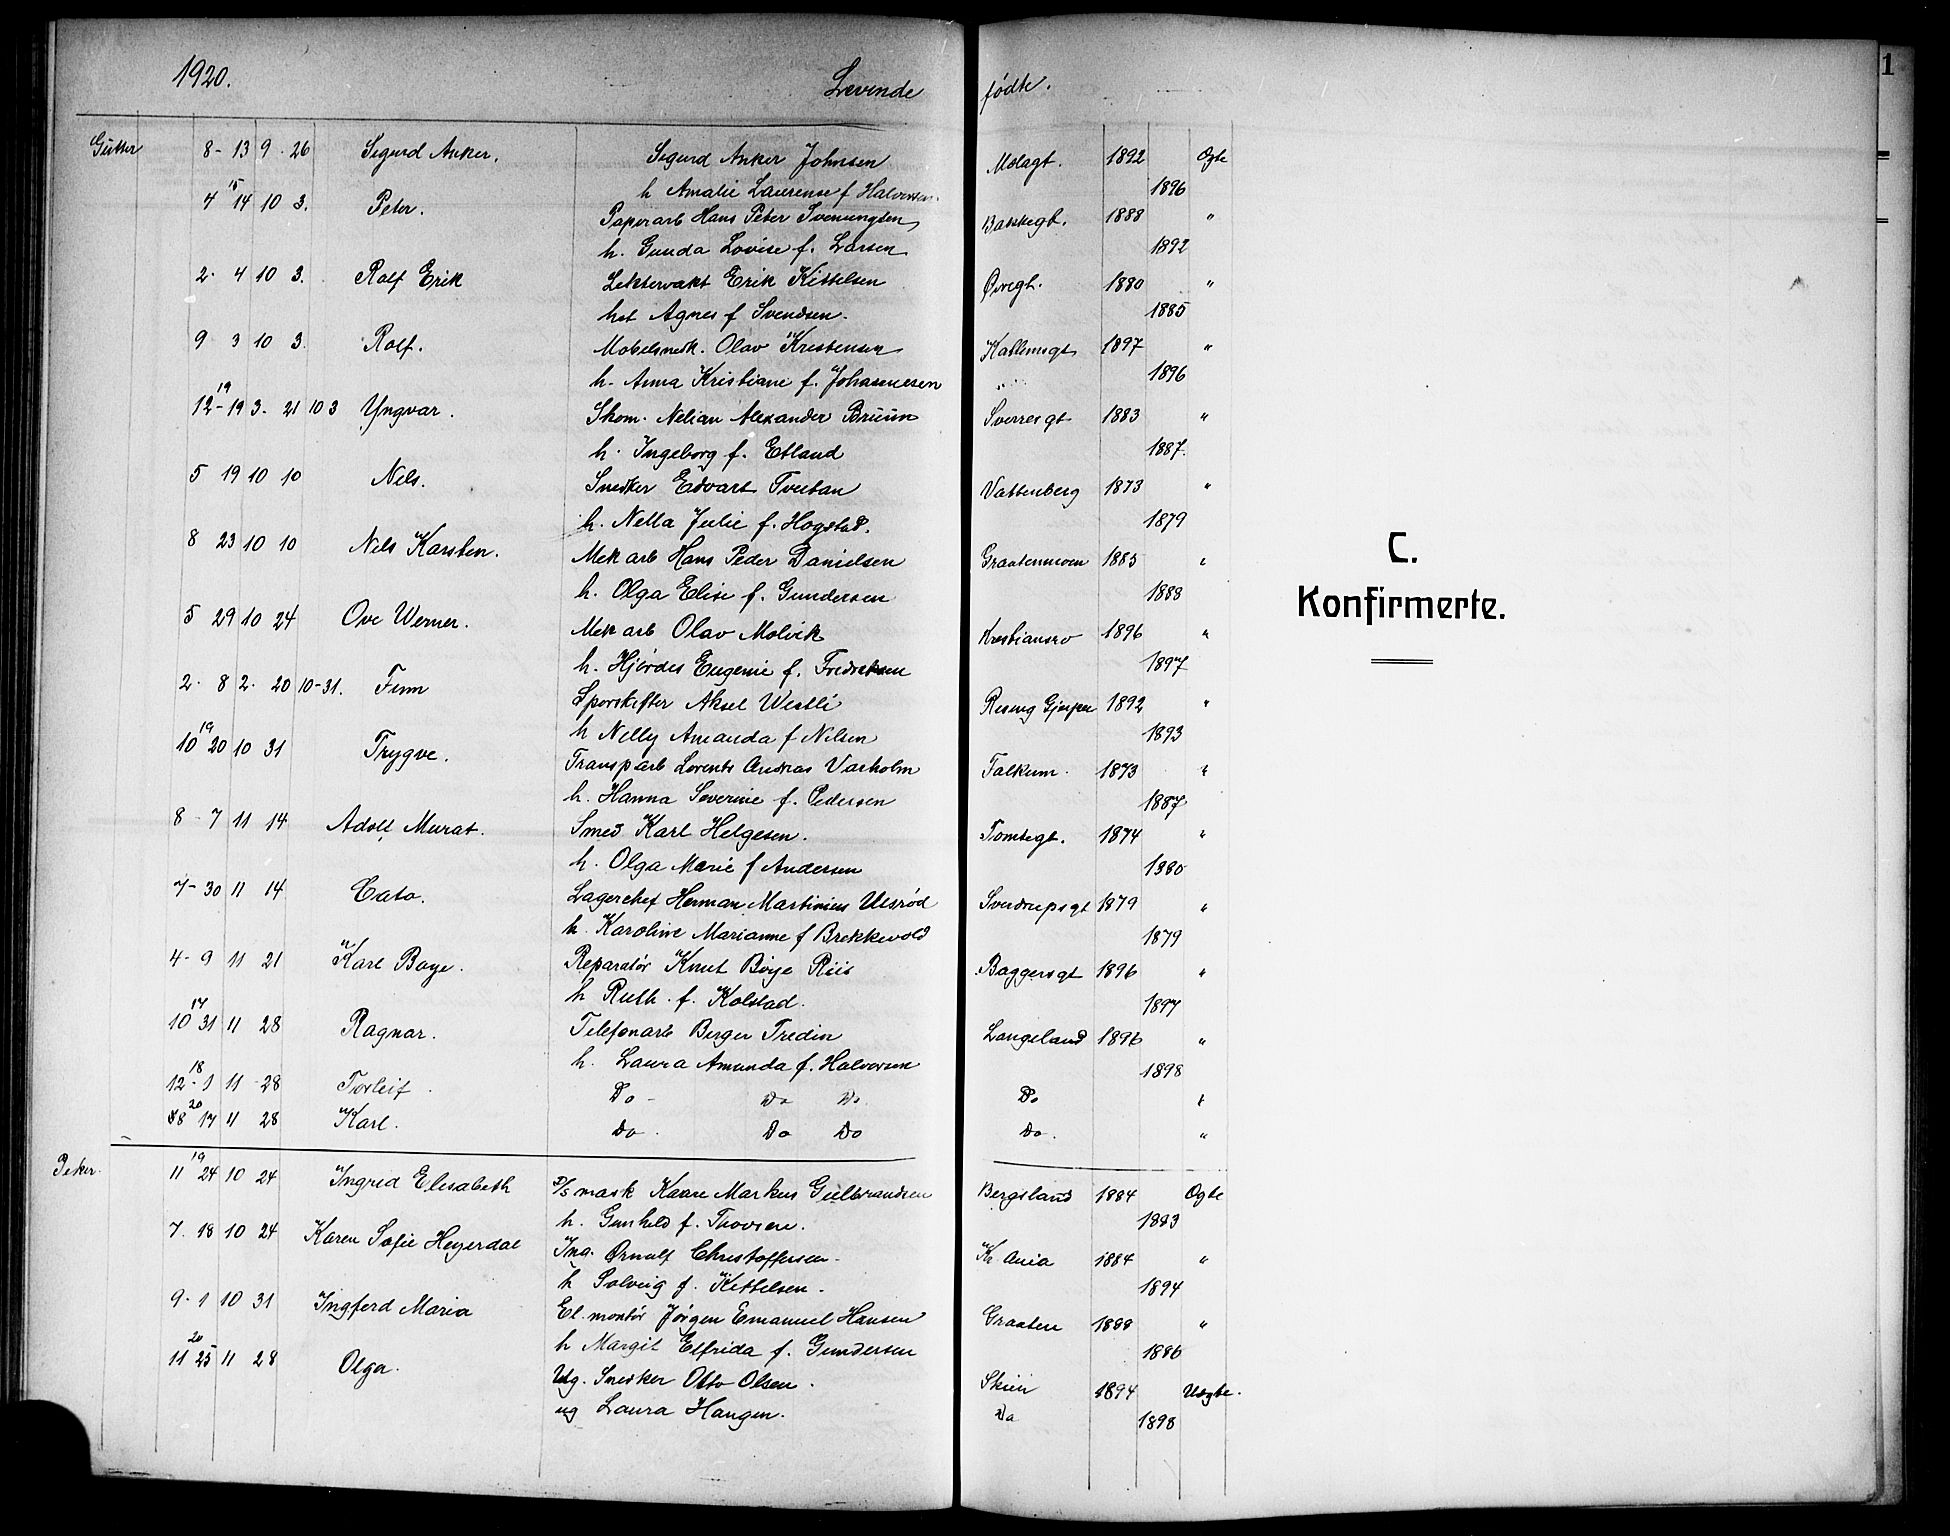 1920. Levende fødte.
1
Gutter 8 - 13 9 - 26 Sigurd Anker. Sigurd Anker Johnsen 1892 Ogte
h Amalie Laurense f Halvorsen. 1896
4 15 14 10 3. Peter. Papirarb Hans Peter Svenungsen 1888 "
h. Gunda Lovise f. Larsen 1892
2. 4 10 3. Rolf Erik Erik Kittelsen Øvregt. 1880 "
h Agnes f Svendsen. 1885
9 3 10 3. Rolf. Mobelsnedk. Olav Kristensen 1897 "
h. Anna Kristiane f. Johannesen " 1896
12 - 19 19 3. 21 10 3 Yngvar. Skom. Nelian Alexander Bruun Sverresgt 1883 "
h. Ingeborg f. Etland 1887.
5 19 10 10 Nels. Snedker Edvart Tveitan Vattenberg 1873 "
h. Nella Julie f. Hogstad. 1879
8 23 10 10 Nils Karsten. Mek arb Hans Peder Danielsen Graatenmoen 1885 "
h. Olga Elise f. Gundersen 1888
5 29 10 24 Ove Werner. Mek arb Olav Molvik Kristiansro 1896 "
h. Hjørdes Eugenie f. Fredriksen 1897
2. 8 2. 20 10 - 31. Finn Sporskifter Aksel Westli Rising Gjerpen 1892 "
h Nelly Amanda f Nilsen 1893
10 19 20 10 31 Trygve. Transp arb Lorents Andreas Varholm Falkum. 1873 "
h. Hanna Severine f. Pedersen 1887
8 - 7 11 14 Adolf Murat. Smed Karl Helgesen. Tomtegt. 1874 "
h. Olga Marie f Andersen 1880
7 - 30 11 14 Cato. Lagerchef Herman Martinius Ulsrød Sverdrupsgt 1879 "
h. Karoline Marianne f Brekkevold 1879
4 - 9 11 21 Karl Boye. Reparatør Knut Böye Riis Baggersgt 1896 "
h Ruth. f. Kolstad. 1897
10 17 31 11 28 Ragnar. Telefonarb Berger Fredin Langeland 1896 "
h. Laura Amanda f. Halvorsen 1898
12 - 18 1 11 - 28 Torleif. Do - Do Do Do "
8 20 17 11 28 Karl. Do. Do Do Do. "
Piker. 11 19 24 10 24 Ingrid Elisabeth D/s mask Kaare Markus Gulbrandsen Bergsland 1884 Ogte
h. Gunhild f. Thovsen. 1883
7. 18 10 24 Karen Sofie Heyerdal Ing. Ørnulf Christoffersen. Kr. ania 1884 "
h Solveig f. Kittelsen. 1894
9 - 1 10 31 Ingferd Maria El. montør Jørgen Emanuel Hansen Graaten 1888 "
h Margit Elfrida f. Gundersen 1886
11 20 25 11 28 Olga. Ug. Snedker Otto Olsen. Skien 1894 Uegte.
ug Laura Haugen. Do 1898
C.
Konfirmerte.